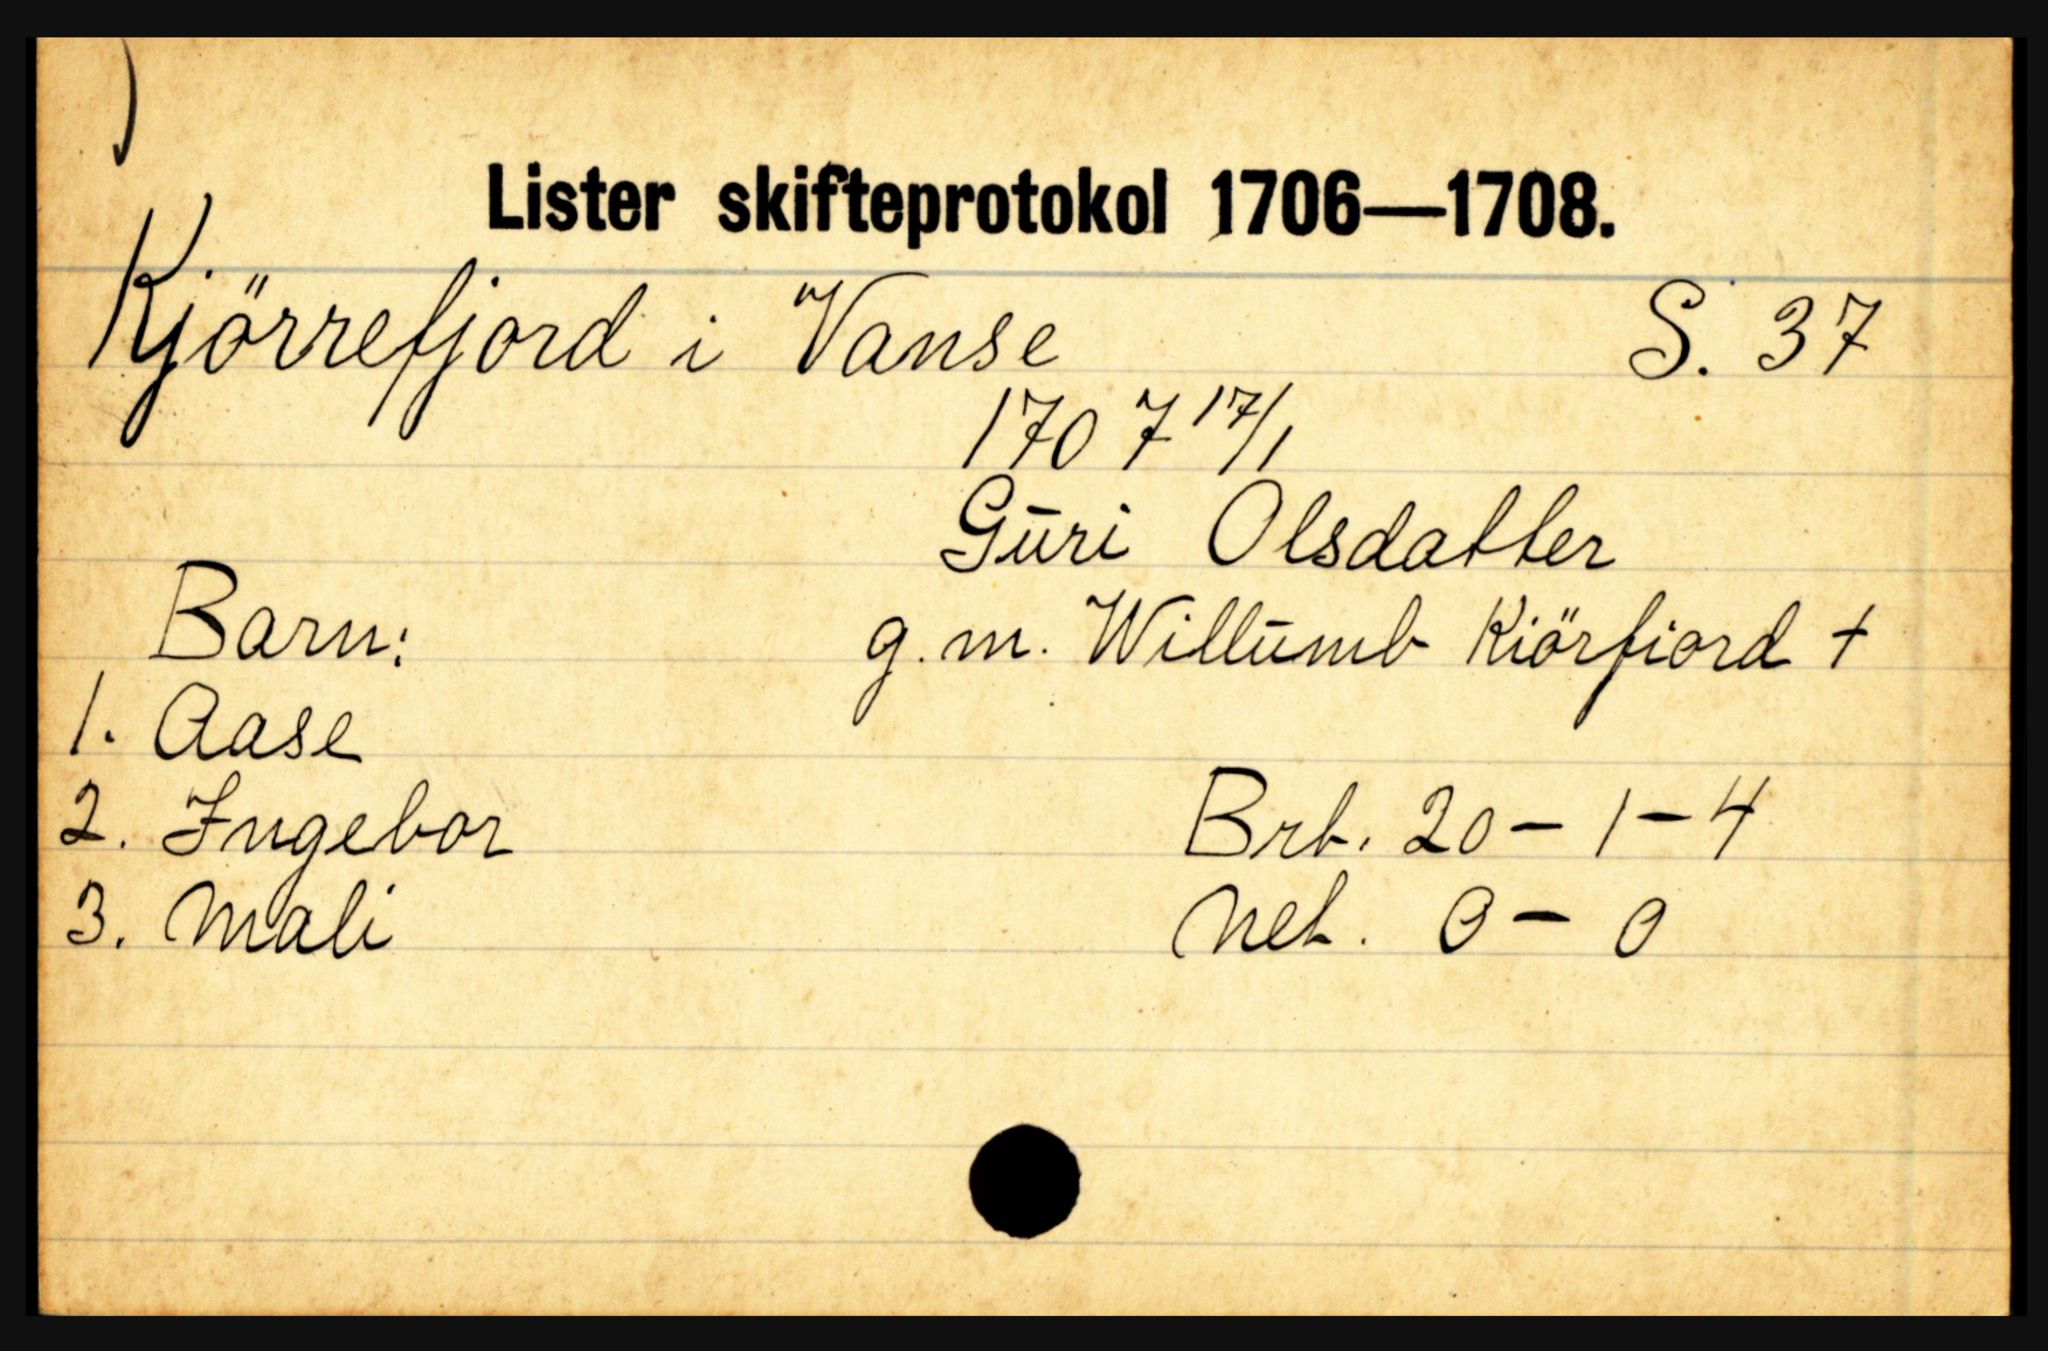 Lister skifteprotokol 1706—1708.
Kjörrefjord i Vanse S. 37
1707 17/1
Gūri Olsdatter
Barn: g.m. Willūmb Kiörfiord †
1. Aase
2. Ingebor Brt. 20 – 1 – 4
3. Mali Net. 0 – 0